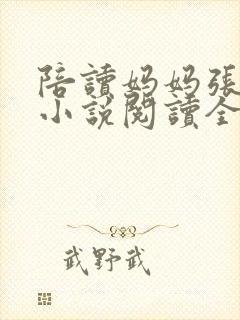 陪讀妈妈張
小說閱讀全
武野武